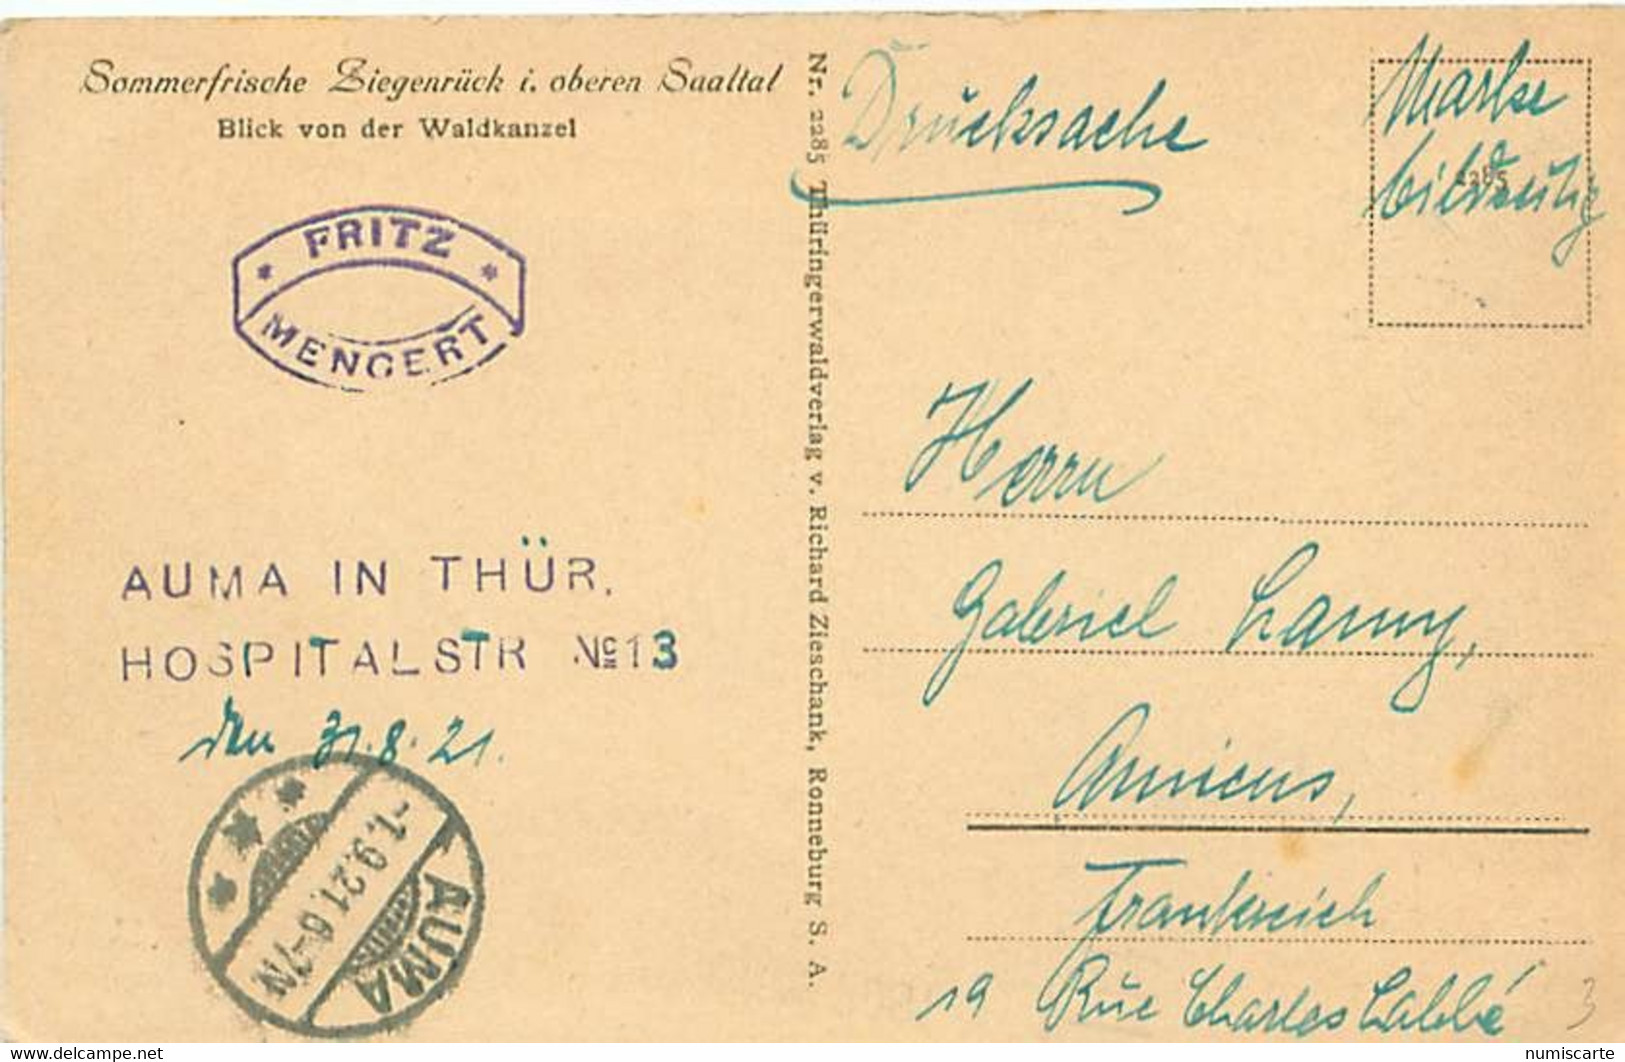 Sommerfrische Ziegenrück i. oberen Saaltal
Blick von der Waldkanzel
FRITZ
MENGERT
AUMA IN THÜR.
HOSPITALSTR No 13
den 31.8.21.
-1.9.21.6-7N
AUMA
Nr. 2285 Thüringerwaldverlag v. Richard Zieschank, Ronneburg S. A.
Drucksache
Marke
bildseitig
2285
Herrn
Gabriel Lanny,
Amiens,
Frankreich
19 Rue Charles Labbé
3
numiscarte